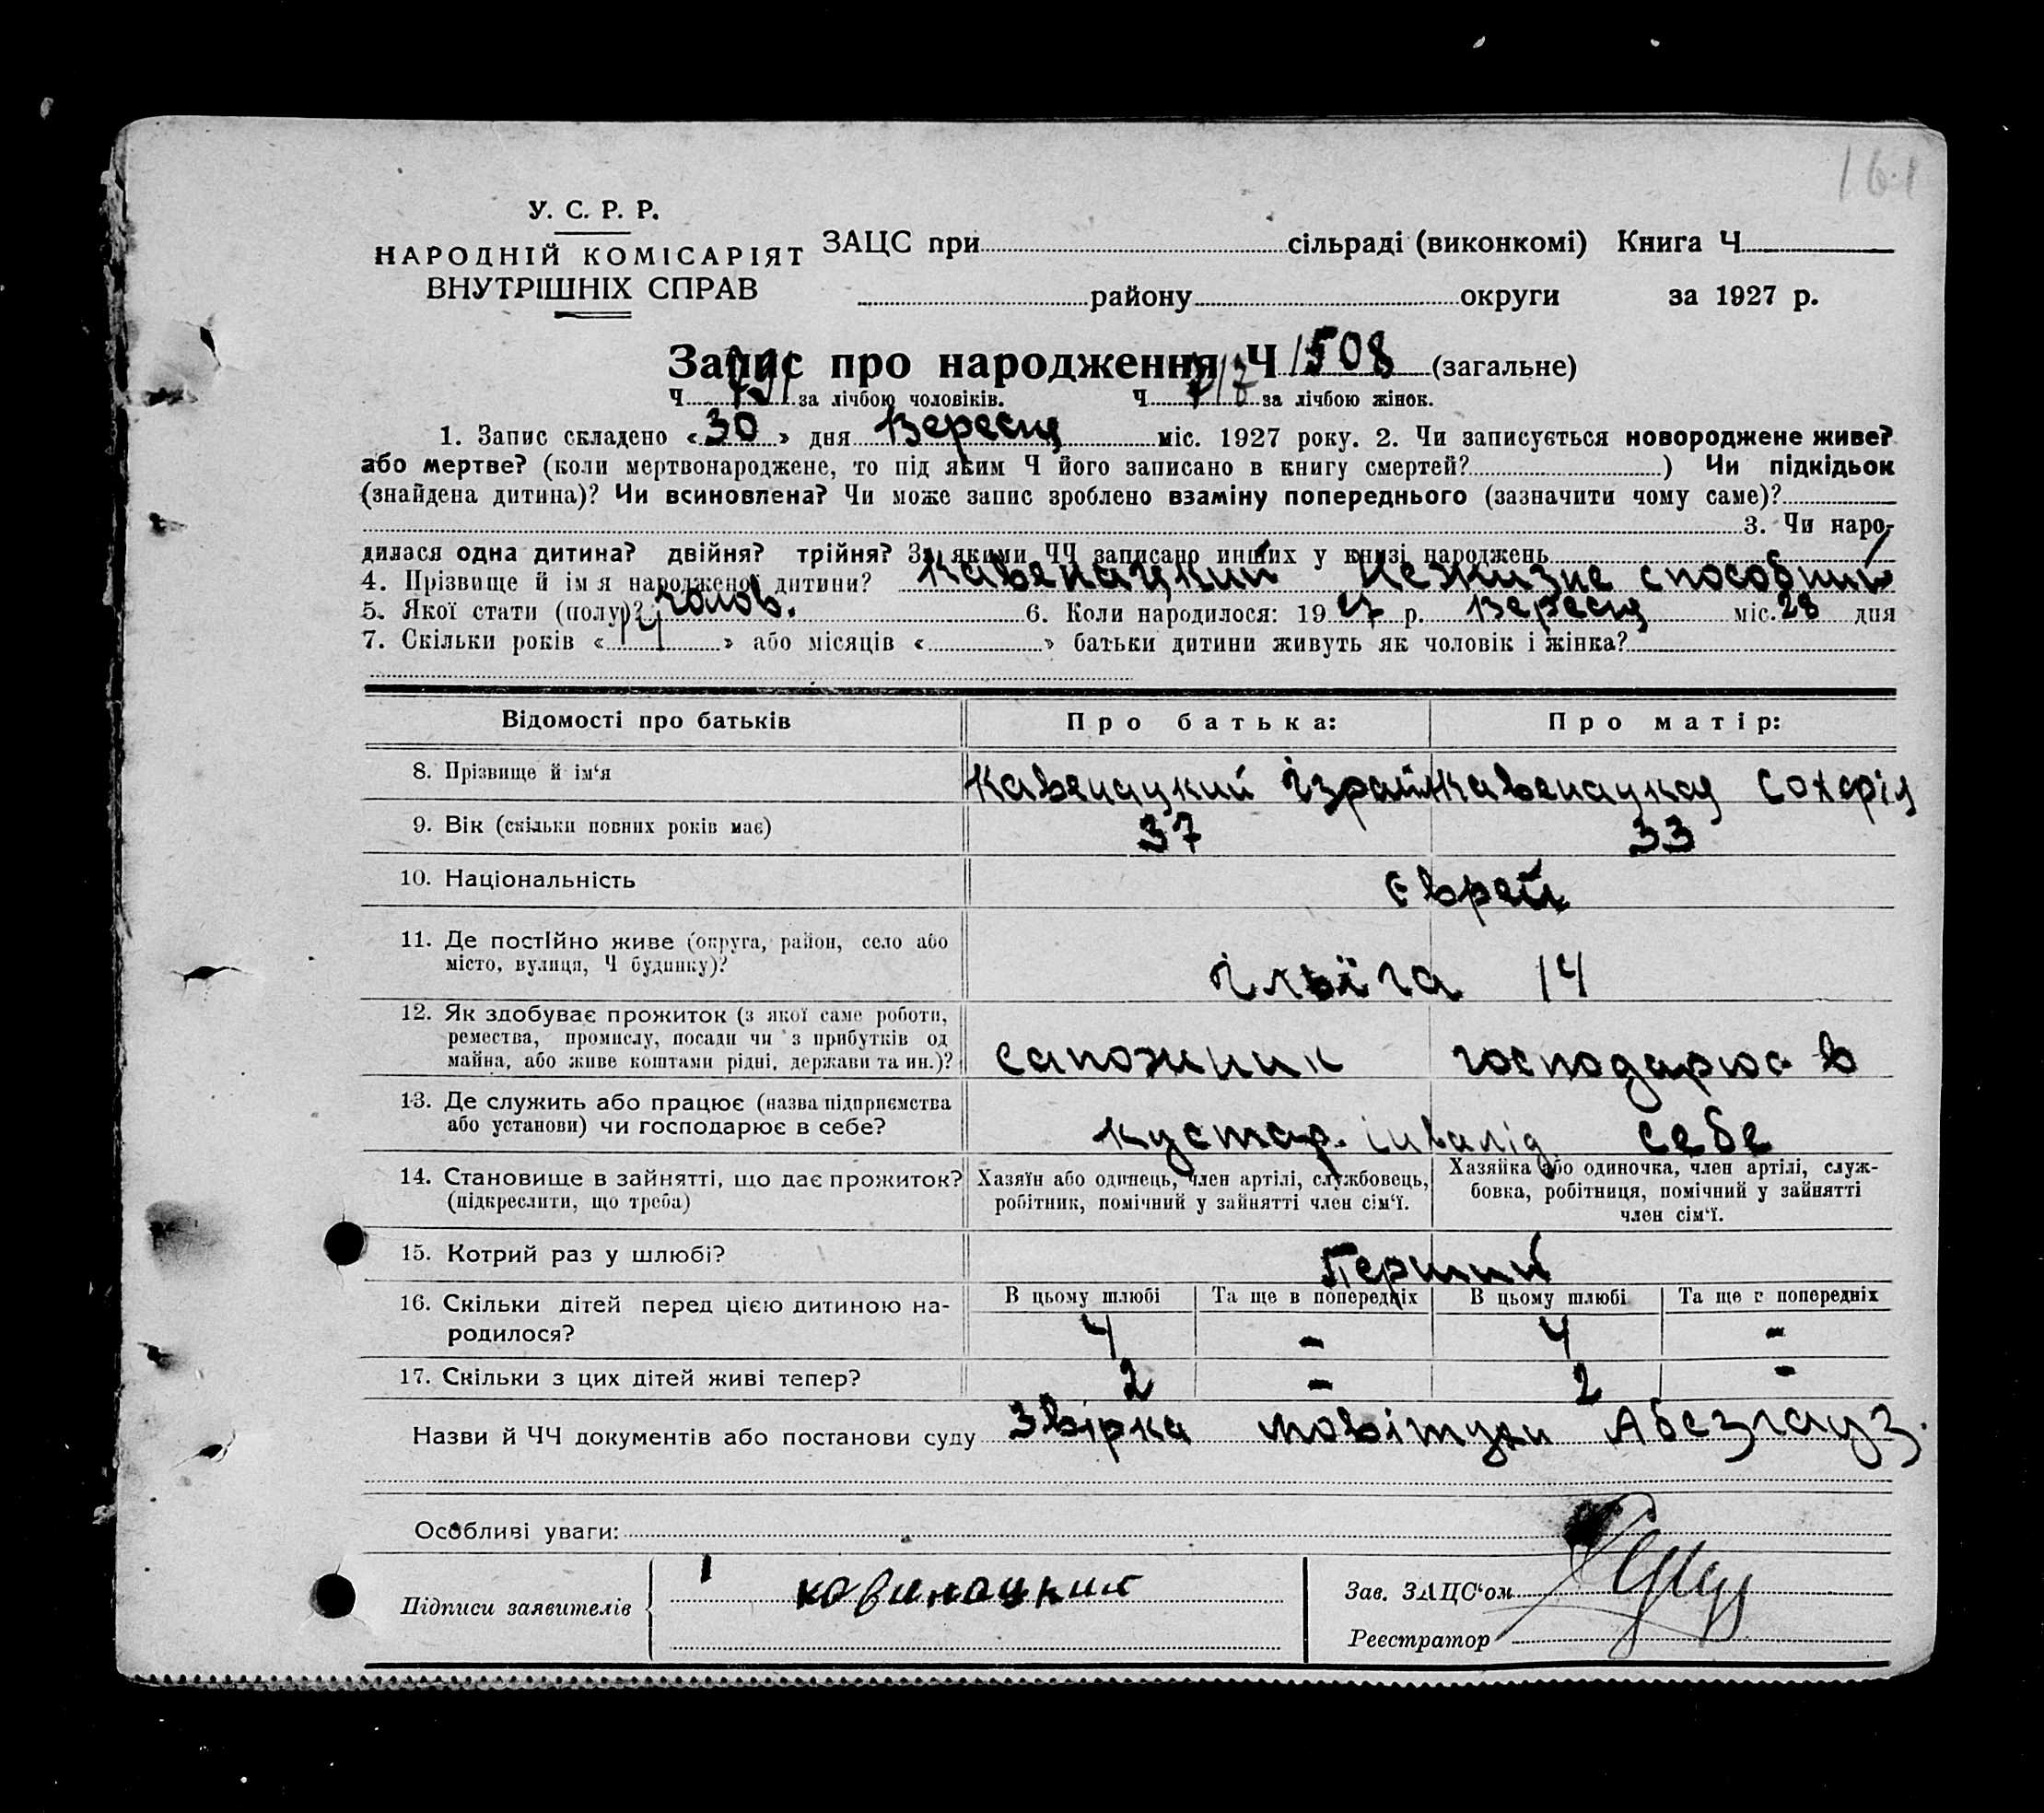 161
У. С. Р. Р.
НАРОДНІЙ КОМІСАРІЯТ
ВНУТРІШНІХ СПРАВ
ЗАЦС при сільраді (виконкомі) Книга Ч
району округи за 1927 р.
Запис про народження Ч 1508 (загальне)
Ч 791 за лічбою чоловіків. Ч 717 за лічбою жінок.
1. Запис складено «30» дня Вересня міс. 1927 року. 2. Чи записується новороджене живе?
або мертве? (коли мертвонароджене, то під яким Ч його записано в книгу смертей? ) Чи підкідьок
(знайдена дитина)? Чи всиновлена? Чи може запис зроблено взаміну попереднього (зазначити чому саме)?
3. Чи наро-
дилася одна дитина? двійня? трійня? За якими ЧЧ записано инших у книзі народжень
4. Прізвище й імя народженої дитини? Кавенацкий Нежизне способний
5. Якої стати (полу)? чолов. 6. Коли народилося: 1927 р. Вересня міс. 28 дня
7. Скільки років «14» або місяців « » батьки дитини живуть як чоловік і жінка?
Відомості про батьків Про батька: Про матір:
8. Прізвище й ім‘я Кавенацкий Ізраїль Кавенацкая
9. Вік (скільки повних років має) 37 33
10. Національність єврей
11. Де постійно живе (округа, район, село або
місто, вулиця, Ч будинку)? Ільіча 14
12. Як здобуває прожиток (з якої саме роботи,
ремества, промислу, посади чи з прибутків од
майна, або живе коштами рідні, держави та ин.)? сапожник господарює в
13. Де служить або працює (назва підприємства
або установи) чи господарює в себе? кустар. інвалід себе
14. Становище в зайнятті, що дає прожиток?
(підкреслити, що треба)
Хазяїн або одинець, член артілі, службовець,
робітник, помічний у зайнятті член сім‘ї.
Хазяйка або одиночка, член артілі, служ-
бовка, робітниця, помічний у зайнятті
член сім‘ї.
15. Котрий раз у шлюбі? Перший
16. Скільки дітей перед цією дитиною на-
родилося?
В цьому шлюбі Та ще в попередніх В цьому шлюбі Та ще в попередніх
4 - 4 -
17. Скільки з цих дітей живі тепер? 2 - 2 -
Назви й ЧЧ документів або постанови суду Звірка повітухи Абезгауз.
Особливі уваги:
Підписи заявителів кавинацкий
Зав. ЗАЦС‘ом
Реєстратор